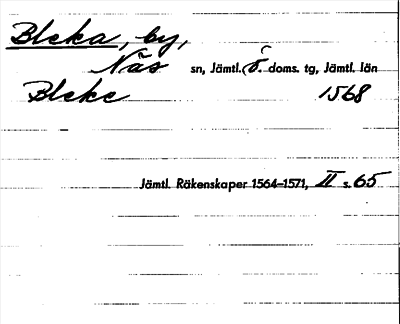 Bleka, by,
Näs sn, Jämtl. ö. doms. tg, Jämtl. län
Bleke 1568
Jämtl. Räkenskaper 1564-1571, II s. 65